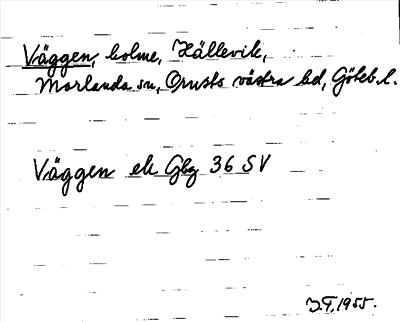 Väggen, holme, Hällevik,
Morlanda sn, Orusts västra hd, Göteb. l.
Väggen ek Gbg 36 SV
J.F. 1955.